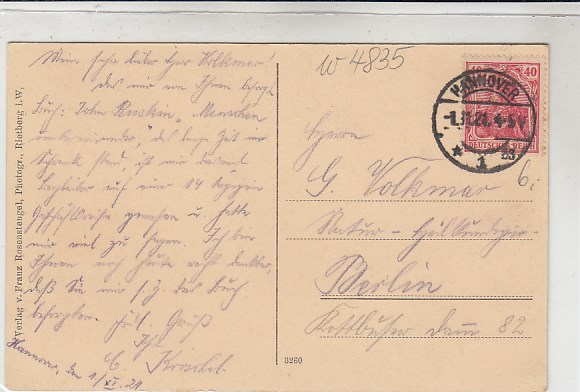 Mein sehr lieber Herr Volkmar!
das mir von Ihnen besorgte
Buch: John Ruskin „Menschen
untereinander", das lange Zeit im
Schrank stand, ist mir
auf einer 14
gewesen u. hatte
mir viel zu sagen. Ich bin
Ihnen noch heute recht dankbar,
daß Sie mir s. Z. das Buch
besorgten. Gruß
Ihr
Hannover, den 1/XI. 21
Verlag v. Franz Rosenstengel, Photogr., Rietberg i. W.
3260
w 4835
40
DEUTSCHES REICH
HANNOVER
-1.11.21. 4-5 V
* 1
Herrn
G. Volkmar
Natur-Heilkundiger
Berlin
Kottbuser Damm 82